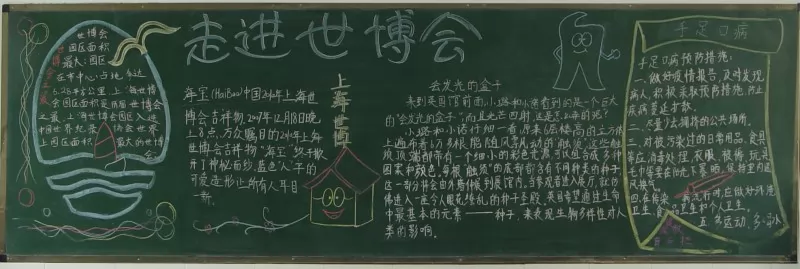 走进世博会
世博会
园区面积
最大:园区
在市中心占地
5.28平方公里,上海世博
会园区面积是历届世博会
之最,上海世博会园区入选
中国世界纪录协会世界
上园区面积最大的世博
会
海宝(HaiBao)中国2010年上海世
博会吉祥物,2007年12月18日晚
上8点,万众瞩目的2010年上海
世博会吉祥物"海宝"终于掀
开了神秘面纱,蓝色"人"字的
可爱造型让所有人耳目
一新。
上海世博
会发光的盒子
来到是国馆前面,小路和小诺看到的是一个巨大
的"会发光的盒子",而且光芒四射,这是怎么回事呢?
小路和小诺仔细一看,原来6层楼高的立方体
上遍布着6万多根能随风浮动的"触须",这些触
须顶端都带有一个细小的彩色光源,可以组合成多种
图案和颜色。每根"触须"的底部都含有不同种类的种子
这一部分将会由外墙伸延到展馆内,当参观者进入展厅,就仿
佛进入一座令人眼花缭乱的种子圣殿,英国希望通过生命
中最基本的元素——种子,来表现生物多样性对人
类的影响。
手足口病
手足口病预防措施:
一、做好疫情报告,及时发现
病人,积极采取预防措施,防止
疾病蔓延扩散。
二、尽量少去拥挤的公共场所。
三、对被污染过的日常用品、食具
等应消毒处理,衣服、被褥、玩具
毛巾等要在阳光下暴晒,保持室内通
风换气。
四、在传染病流行时,应做好环境
卫生、食品卫生和个人卫生。
五、多运动,多喝水